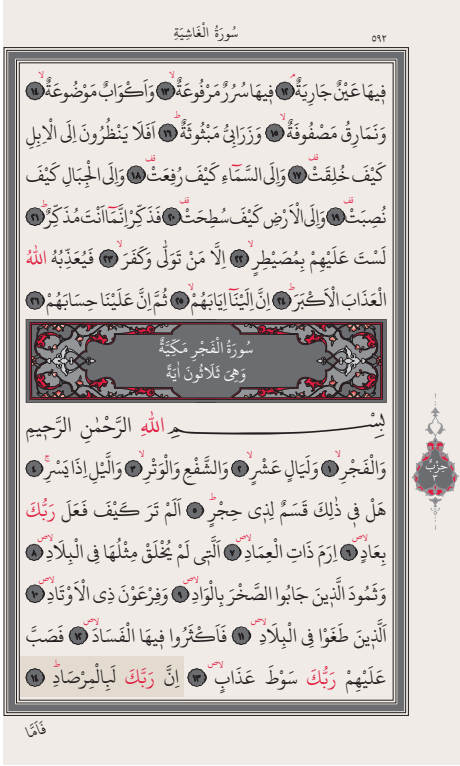 سُورَةُ الْغَاشِيَةِ
٥٩٢
فٖيهَا عَيْنٌ جَارِيَةٌۢ ﴿١٢﴾ فٖيهَا سُرُرٌ مَرْفُوعَةٌۙ ﴿١٣﴾ وَاَكْوَابٌ مَوْضُوعَةٌۙ ﴿١٤﴾
وَنَمَارِقُ مَصْفُوفَةٌۙ ﴿١٥﴾ وَزَرَابِيُّ مَبْثُوثَةٌؕ ﴿١٦﴾ اَفَلَا يَنْظُرُونَ اِلَى الْاِبِلِ
كَيْفَ خُلِقَتْࣞ ﴿١٧﴾ وَاِلَى السَّمَٓاءِ كَيْفَ رُفِعَتْࣞ ﴿١٨﴾ وَاِلَى الْجِبَالِ كَيْفَ
نُصِبَتْࣞ ﴿١٩﴾ وَاِلَى الْاَرْضِ كَيْفَ سُطِحَتْࣞ ﴿٢٠﴾ فَذَكِّرْ اِنَّمَٓا اَنْتَ مُذَكِّرٌؕ ﴿٢١﴾
لَسْتَ عَلَيْهِمْ بِمُصَيْطِرٍۙ ﴿٢٢﴾ اِلَّا مَنْ تَوَلّٰى وَكَفَرَۙ ﴿٢٣﴾ فَيُعَذِّبُهُ اللّٰهُ
الْعَذَابَ الْاَكْبَرَؕ ﴿٢٤﴾ اِنَّ اِلَيْنَٓا اِيَابَهُمْۙ ﴿٢٥﴾ ثُمَّ اِنَّ عَلَيْنَا حِسَابَهُمْ ﴿٢٦﴾
سُورَةُ الْفَجْرِ مَكِّيَّةٌ
وَهِيَ ثَلَاثُونَ اٰيَةً
بِسْمِ اللّٰهِ الرَّحْمٰنِ الرَّحٖيمِ
وَالْفَجْرِۙ ﴿١﴾ وَلَيَالٍ عَشْرٍۙ ﴿٢﴾ وَالشَّفْعِ وَالْوَتْرِۙ ﴿٣﴾ وَالَّيْلِ اِذَا يَسْرِۚ ﴿٤﴾
حِزْبٌ
٣
هَلْ فٖي ذٰلِكَ قَسَمٌ لِذٖي حِجْرٍؕ ﴿٥﴾ اَلَمْ تَرَ كَيْفَ فَعَلَ رَبُّكَ
بِعَادٍۙۖ ﴿٦﴾ اِرَمَ ذَاتِ الْعِمَادِۙۖ ﴿٧﴾ اَلَّتٖي لَمْ يُخْلَقْ مِثْلُهَا فِي الْبِلَادِۙۖ ﴿٨﴾
وَثَمُودَ الَّذٖينَ جَابُوا الصَّخْرَ بِالْوَادِۙۖ ﴿٩﴾ وَفِرْعَوْنَ ذِي الْاَوْتَادِۙۖ ﴿١٠﴾
اَلَّذٖينَ طَغَوْا فِي الْبِلَادِۙۖ ﴿١١﴾ فَاَكْثَرُوا فٖيهَا الْفَسَادَۙۖ ﴿١٢﴾ فَصَبَّ
عَلَيْهِمْ رَبُّكَ سَوْطَ عَذَابٍۙۖ ﴿١٣﴾ اِنَّ رَبَّكَ لَبِالْمِرْصَادِؕ ﴿١٤﴾
فَاَمَّا